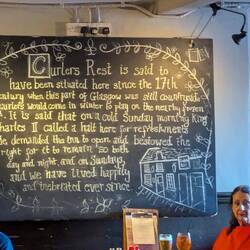 Curlers Rest is said to
have been situated here since the 17th
century when this part of Glasgow was still countryside.
Curlers would come in winter to play on the nearby frozen
It is said that on a cold Sunday morning King
Charles II called a halt here for refreshments.
He demanded this inn to open and bestowed the
right for it to remain so both
day and night, and on Sundays,
and we have lived happily
and inebriated ever since.